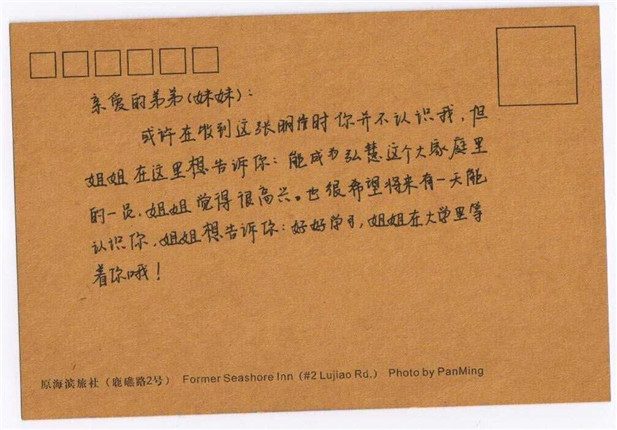 亲爱的弟弟(妹妹)：
或许在收到这张明信片时你并不认识我，但
姐姐在这里想告诉你：能成为弘慧这个大家庭里
的一员，姐姐觉得很高兴。也很希望将来有一天能
认识你，姐姐想告诉你：好好学习，姐姐在大学里等
着你哦！
原海滨旅社（鹿礁路2号） Former Seashore Inn（#2 Lujiao Rd.） Photo by PanMing